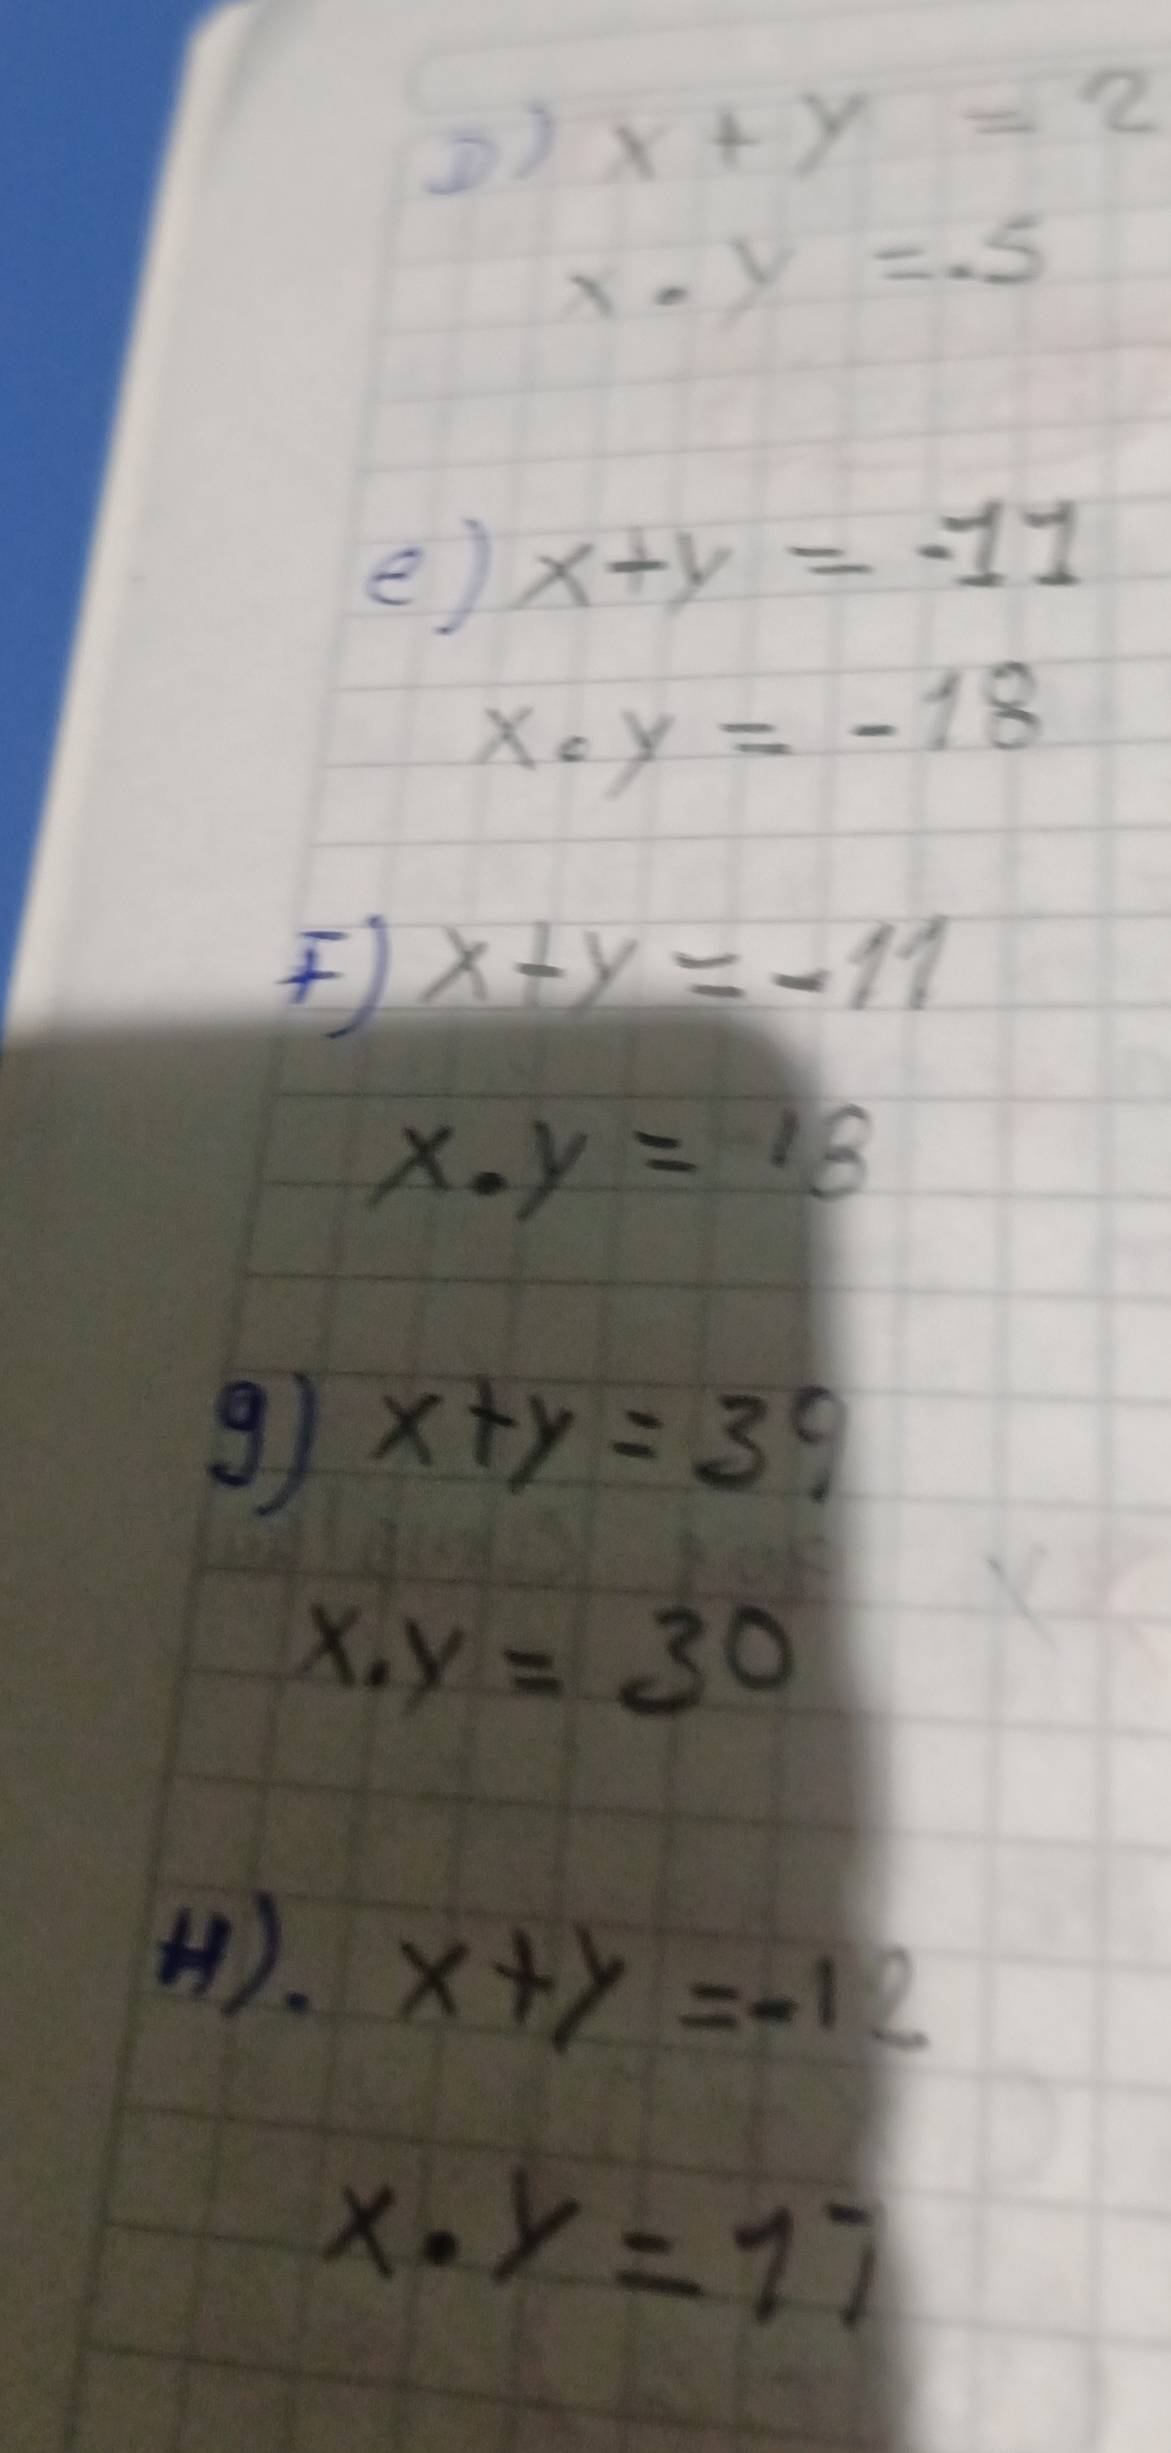 D) x + y = 2
x . y = . 5
e) x + y = -11
x . y = - 18
F) x + y = - 11
x . y = 18
g) x + y = 39
x . y = 30
H). x + y = -12
x . y = 17